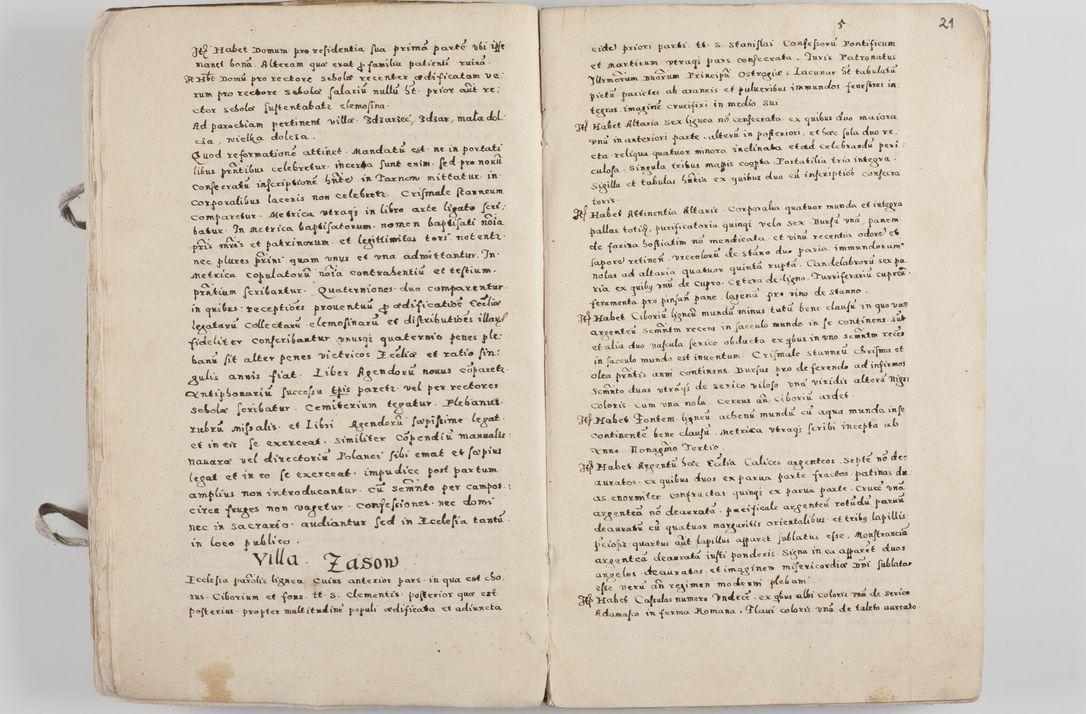 Itē Habet Domum pro residentia sua primā partē ubi ipse
manet bonā. Alteram quæ erat p familia patientē ruinā.
Itē Hbt Domū pro rectore scholæ recenter ædificatam ve:
rum pro rectore scholæ salariū nullū ht. prior aūt re:
ctor scholæ sustentabatr elemosina.
Ad parochiam pertinent villæ. Zdzarzec, Zdzar, mala dol
cza, wielka dolcza.
Quod reformationē attinet. Mandatū est. ne in portati
libus prntibus celebretur. incerta sunt enim. sed pro novū
consecratū inscriptionē hnte in Tarnow mittatur. in
corporalibus laceris non celebretr. Crismale stanneum
comparetur. Metrica utraqi in libro arte ligato scri:
batur. In metrica baptisatorum. nomen baptisati nōia
pris mris et patrinorum. et legittimitas tori notentr.
nec plures prini quam unus et una admittantur. In
Metrica copulatorū nōia contrahentiū et testium
prntium scribantur. Quaterniones duo comparentur.
in quibus receptiōes proventuū p ædificatiōe Ecclīæ
legatarū collectarū elemosinarū et distributiōes illarū
fideliter conscribantur unusqi quaternio penes ple:
banū sit alter penes victricos Ecclīæ et ratio sin:
gulis annis fiat. Liber Agendorū novus cōparetr
Antiphonariū successu tpis paretr. vel per rectores
scholæ scribatur. Cemiterium tegatur. Plebanus
rubrū missalis. et Libri Agendorū sæpissime legat
et in eis se exerceat. Similiter cōpendiū manualis
Navaræ vel directoriū Polanci sibi emat et sæpius
legat et in eo se exerceat. impudicæ post partum
amplius non introducantur. cū Scmnto per campos:
circa fruges non vagetur. Confessiones. nec domi
nec in sacrario. audiantur sed in Ecclesia tantū.
in loco publico.
Villa. Zasow
Ecclesia parchlis lignea. Cuius anterior pars. in qua est cho
rus. Ciborium et fons. tt. S. Clementis. posterior quæ est
posterius. propter multitudinē populi ædificata et adiuncta
5
21
eidē priori parti. tt. S. Stanislai Confessorū Pontificum
et Martirum. utraqi pars consecrata. Iuris Patronatus
Illrmōrum Dnōrum Principū Ostrogiæ. Lacunar ht tabulatū
pictū parietes ab araneis et pulveribus immundos. fenestras in
tegras. imaginē crucifixi in medio sui.
Itē Habet Altaria sex lignea nō consecrata. ex quibus duo maiora
unū in anteriori parte. alterū in posteriori, et hæc sola duo re,
cta. reliqua quatuor minora inclinata et ad celebrandū peri:
culosa. Singula tribus mappis coopta. Portatilia tria integra.
Sigilla et tabulas hntia ex quibus duo cū inscriptiōe consecra
toris.
Itē Habet Attinentia Altaris. Corporalia quatuor munda et integra
pallas totiq. purificatoria quinqi vela sex. Bursā unā. panem
de farina hostiatim nō mendicata. et vinū recentia odore et
sapore retinen. Urceolorū de stāno duo paria immundorum
nolas ad altaria quatuor quintā ruptā. Candelabrorū sex pa
ria ex quibq unū de cupro. Cetera de ligno. Turriferariū cupreū.
feramenta pro pinsan pane. lagenā pro vino de stanno.
Itē Habet Ciboriū ligneū mundū minus tutū bene clausū in quo vas
argenteū Scmntm recens in sacculo mundo in se continens sub
et alia duo vascula serico obducta ex qbus in uno scmntm recēs
in sacculo mundo est inventum. Crismale stanneū Chrisma et
olea prntis anni continens. Bursas pro deferendo ad infirmos
Scmnto duas utrāqi de serico viloso unā viridis alterā nigri
coloris cum una nola. Cereus an. Ciborū ardet.
Itē Habet Fontem ligneū ahenū mundū cū aqua munda inse
continentē bene clausū. Metrica utraqi scribi incepta ab
Anno Nonagmo Tertio.
Itē Habet Argentū hæc Ecclīa Calices argenteos. Septē nō de:
auratos. ex quibus duos ex parva parte fractos. patinas du
as enormiter confractas. quinqi ex parva parte. Crucē unā
argenteā nō deauratā. pacificale argenteū rotūdū parvū
deauratū cū quatuor margaritis orientalibus. et tribq lapillis
pciosis. quartus aūt lapillus apparet sublatus esse. Monstranciā
argenteā deauratā iusti ponderis. Signa in ea apparēt duos
angelos deauratos. et imaginem misericordiæ Dni sublatas
esse veru an regimen moderni plebani.
Itē Habet Casulas numero undecē. ex qbus albi coloris unā de serico
Adamasco in forma Romana. Flavi coloris unā de taleto aureato